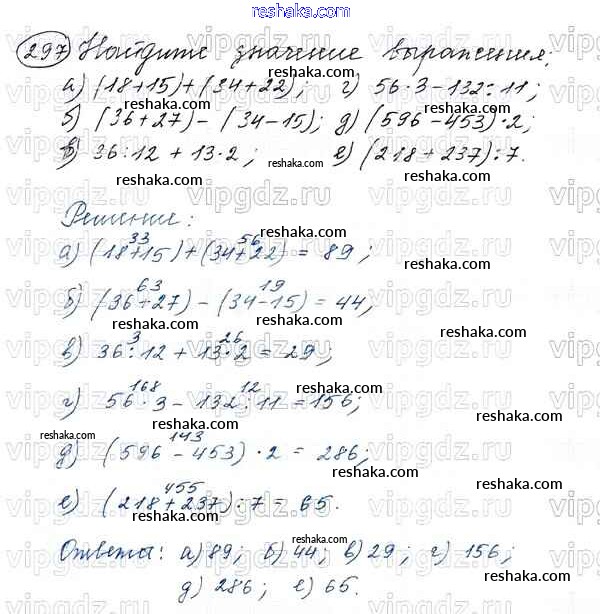 reshaka.com
297 Найдите значение выражения:
а) (18+15)+(34+22); г) 56·3-132:11;
б) (36+27)-(34-15); д) (596-453)·2;
в) 36:12+13·2; е) (218+237):7.
Решение:
33 56
а) (18+15)+(34+22) = 89;
63 19
б) (36+27)-(34-15) = 44;
3 26
в) 36:12+13·2 = 29;
168 12
г) 56·3-132:11 = 156;
143
д) (596-453)·2 = 286;
455
е) (218+237):7 = 65.
Ответы: а) 89; б) 44; в) 29; г) 156;
д) 286; е) 65.
vipgdz.ru